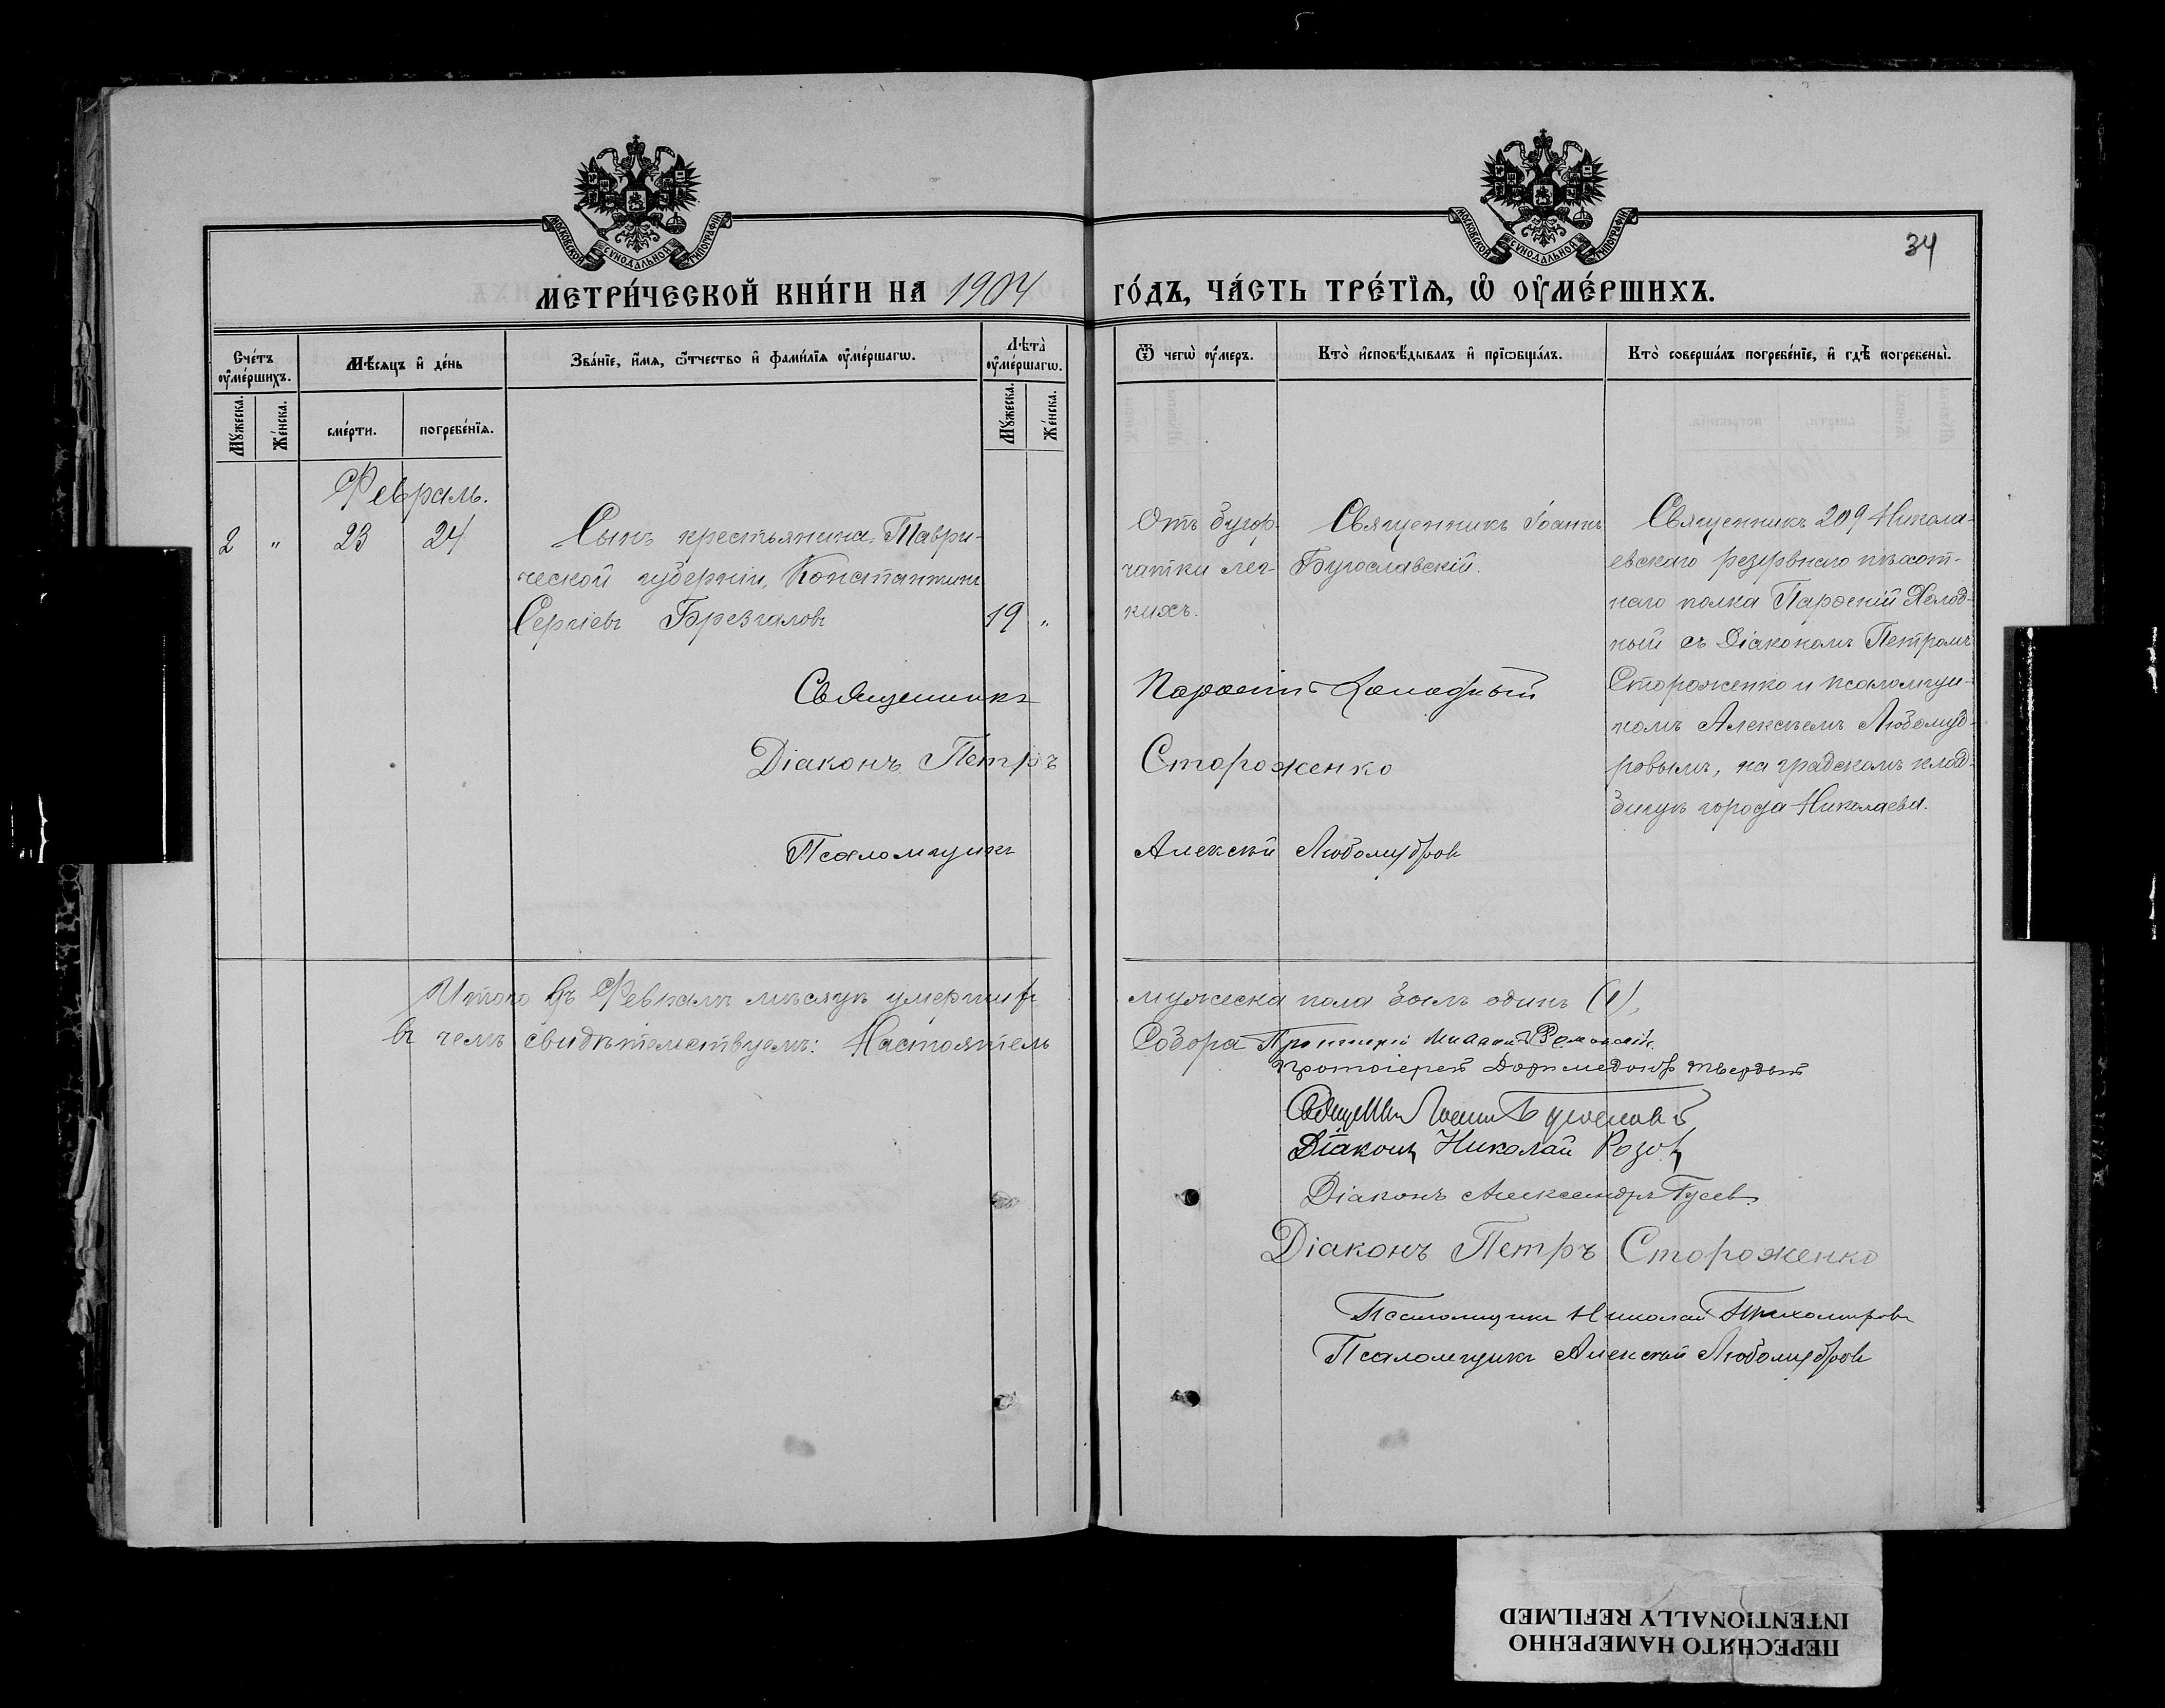 МОСКОВСКОЙ СѴНОДАЛЬНОЙ ТИПОГРАФІИ
МОСКОВСКОЙ СѴНОДАЛЬНОЙ ТИПОГРАФІИ
34
МЕТРИ́ЧЕСКОЙ КНИ́ГИ НА 1904 ГО́ДЪ, ЧА́СТЬ ТРЕ́ТЇѦ, Ѡ҆ ОУ҆МЕ́РШИХЪ.
Сче́тъ оу҆ме́ршихъ.
Мꙋ́жеска.
Же́нска.
Мѣ́сяцъ и҆ де́нь
сме́рти.
погребе́нїѧ.
Зва́нїе, и҆́мѧ, ѻ҆́тчество и҆ фами́лїѧ оу҆ме́ршагѡ.
Лѣ̑та оу҆ме́ршагѡ.
Мꙋ́жеска.
Же́нска.
Ѿ чегѡ̀ оу҆́меръ.
Кто̀ и҆сповѣ́дывалъ и҆ прїѡбща́лъ.
Кто̀ соверша́лъ погребе́нїе, и҆ гдѣ̀ погребены̀.
Февраль.
2 „ 23 24
Сынъ крестьянина Таври-
ческой губерніи, Константинъ
Сергіевъ Брезгаловъ 19 „
Отъ бугор-
чатки лег-
кихъ.
Священникъ Іоаннъ
Бугославскій.
Священникъ 209 Никола-
евскаго резервнаго пѣхот-
наго полка Парѳеній Холод-
ный съ Діакономъ Петромъ
Стороженко и псаломщи-
комъ Алексѣемъ Любомуд-
ровымъ, на градскомъ клад-
бищѣ города Николаева.
Священникъ Парѳеній Холодный
Діаконъ Петръ Стороженко
Псаломщикъ Алексѣй Любомудровъ
Итого въ Февралѣ мѣсяцѣ умершихъ мужеска пола былъ одинъ (1),
въ чемъ свидѣтельствуемъ: Настоятель Собора Протоіерей
Протоіерей Доримедонтъ Твердый
Священникъ Іоаннъ
Діаконъ Николай Розовъ
Діаконъ Александръ Гусевъ
Діаконъ Петръ Стороженко
Псаломщикъ Николай Тихомировъ
Псаломщикъ Алексѣй Любомудровъ
ПЕРЕСНЯТО НАМЕРЕННО
INTENTIONALLY REFILMED